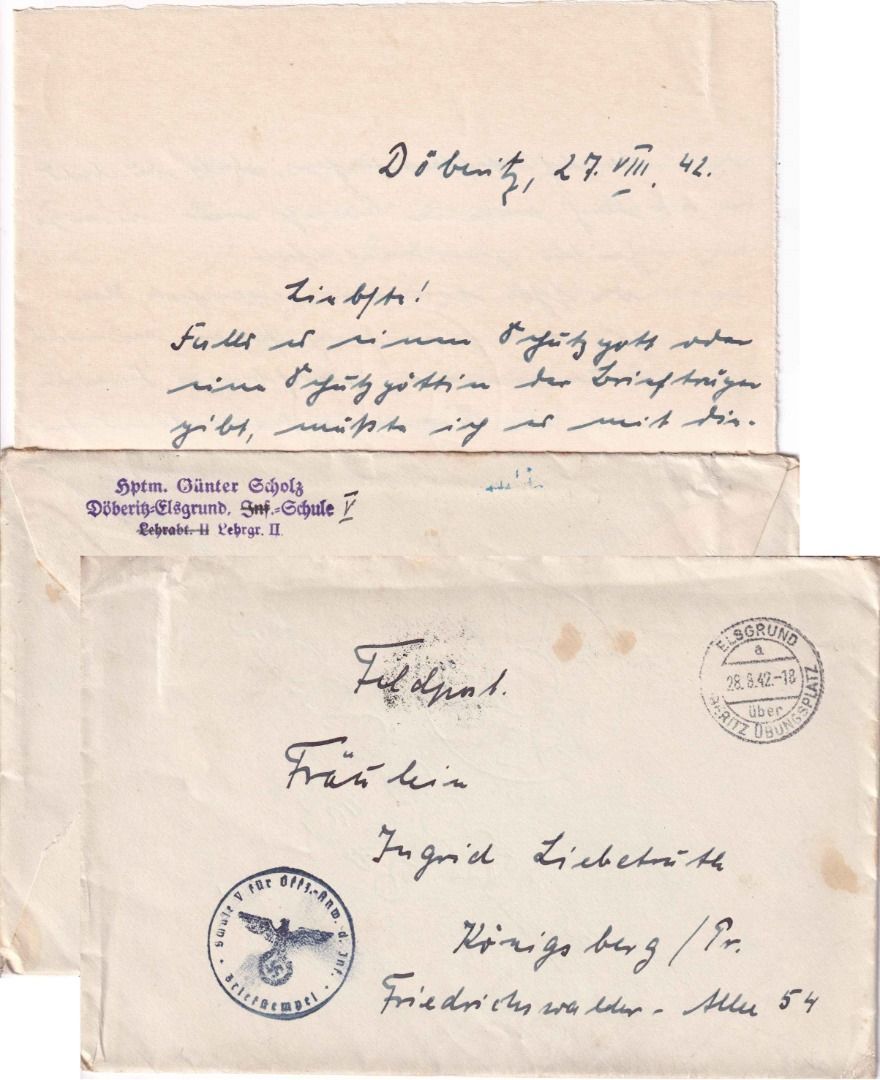 Döberitz, 27. VIII. 42.
Liebste!
Falls es einen Schutzgott oder
eine Schutzgöttin der Briefträger
gibt, müßte ich es mit die-
Hptm. Günter Scholz
Döberitz-Elsgrund, Inf.-Schule V
Lehrabt. II Lehrgr. II
Feldpost.
ELSGRUND
a
28.8.42.-18
über
BERITZ ÜBUNGSPLATZ
Fräulein
Ingrid Liebetruth
Königsberg / Pr.
Friedrichswalder - Allee 54
Schule V für Offz.-Anw. d. Inf.
Briefstempel